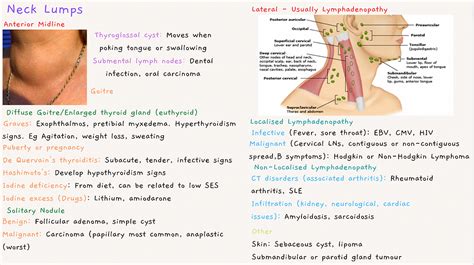 Neck Lumps
Anterior Midline
Thyroglossal cyst: Moves when
poking tongue or swallowing
Submental lymph nodes: Dental
infection, oral carcinoma
Goitre
Diffuse Goitre/Enlarged thyroid gland (euthyroid)
Graves: Exophthalmos, pretibial myxedema. Hyperthyroidism
signs. Eg Agitation, weight loss, sweating
Puberty or pregnancy
De Quervain's thyroiditis: Subacute, tender, infective signs
Hashimoto's: Develop hypothyroidism signs
Iodine deficiency: From diet, can be related to low SES
Iodine excess (Drugs): Lithium, amiodarone
Solitary Nodule
Benign: Follicular adenoma, simple cyst
Malignant: Carcinoma (papillary most common, anaplastic
(worst)
Lateral - Usually Lymphadenopathy
Posterior auricular
Scalp, external ear
Occipital
Scalp
Superficial cervical
Lower ear and parotid
Deep cervical
Posterior cervical
Supraclavicular
Preauricular
Parotid
Tonsillar
(jugulodigastric)
Submental
Lower lip, floor of
mouth, apex of tongue
Submandibular
Cheek, side of nose, lower
lip, gums, anterior tongue
Localised Lymphadenopathy
Infective (Fever, sore throat): EBV, CMV, HIV
Malignant (Cervical LNs, contiguous or non-contiguous
spread,B symptoms): Hodgkin or Non-Hodgkin Lymphoma
Non-Localised Lymphadenopathy
CT disorders (associated arthritis): Rheumatoid
arthritis, SLE
Infiltration (kidney, neurological, cardiac
issues): Amyloidosis, sarcoidosis
Other
Skin: Sebaceous cyst, lipoma
Submandibular or parotid gland tumour